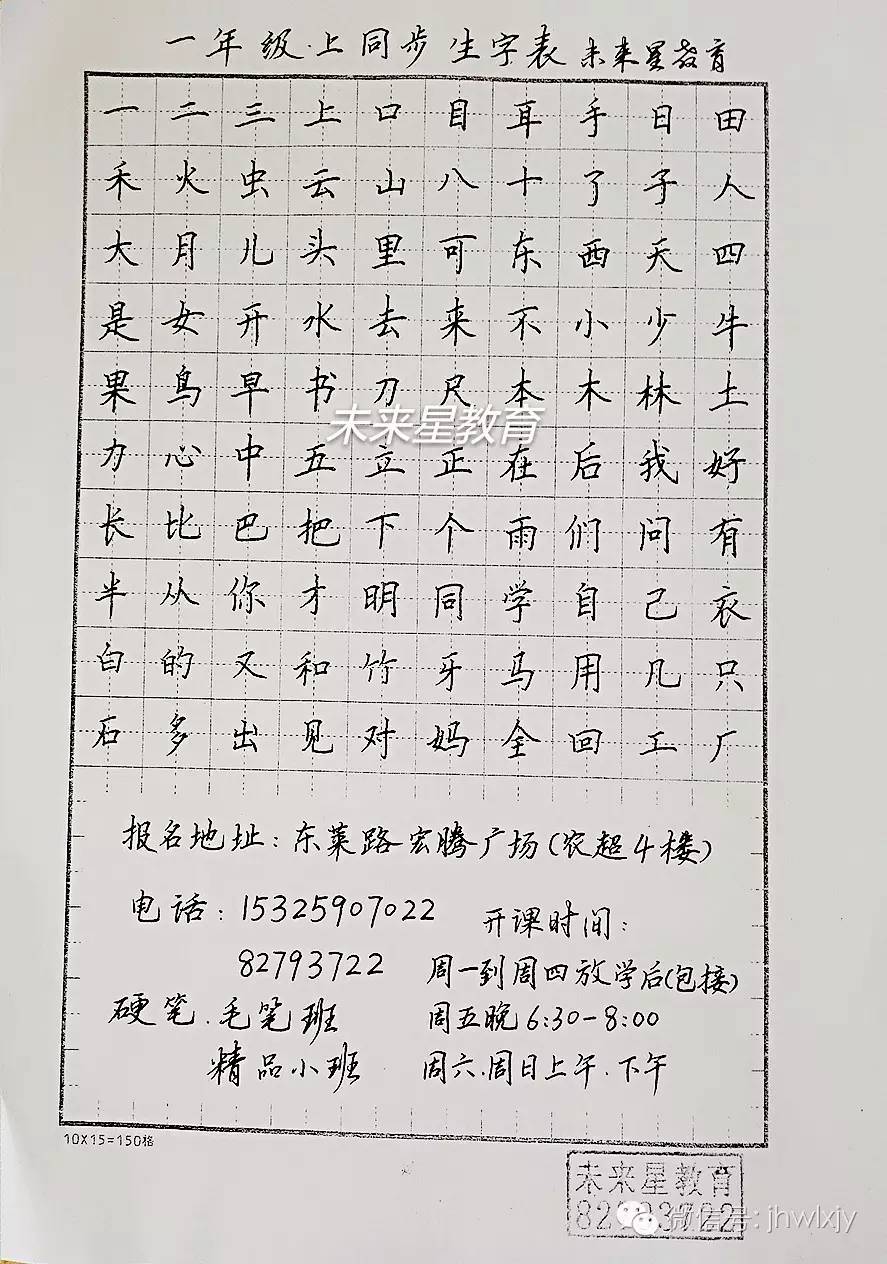 一年级·上同步生字表 未来星教育
一二三上口目耳手日田
禾火虫云山八十了子人
大月儿头里可东西天四
是女开水去来不小少牛
果鸟早书刀尺本木林土
未来星教育
力心中五立正在后我好
长比巴把下个雨们问有
半从你才明同学自己衣
白的又和竹牙马用几只
石多出见对妈全回工厂
报名地址：东莱路宏腾广场（农超4楼）
电话：15325907022 开课时间：
82793722 周一到周四放学后（包接）
硬笔、毛笔班 周五晚6:30-8:00
精品小班 周六、周日上午、下午
10X15=150格
未来星教育
82793722
微信号: jhwlxjy